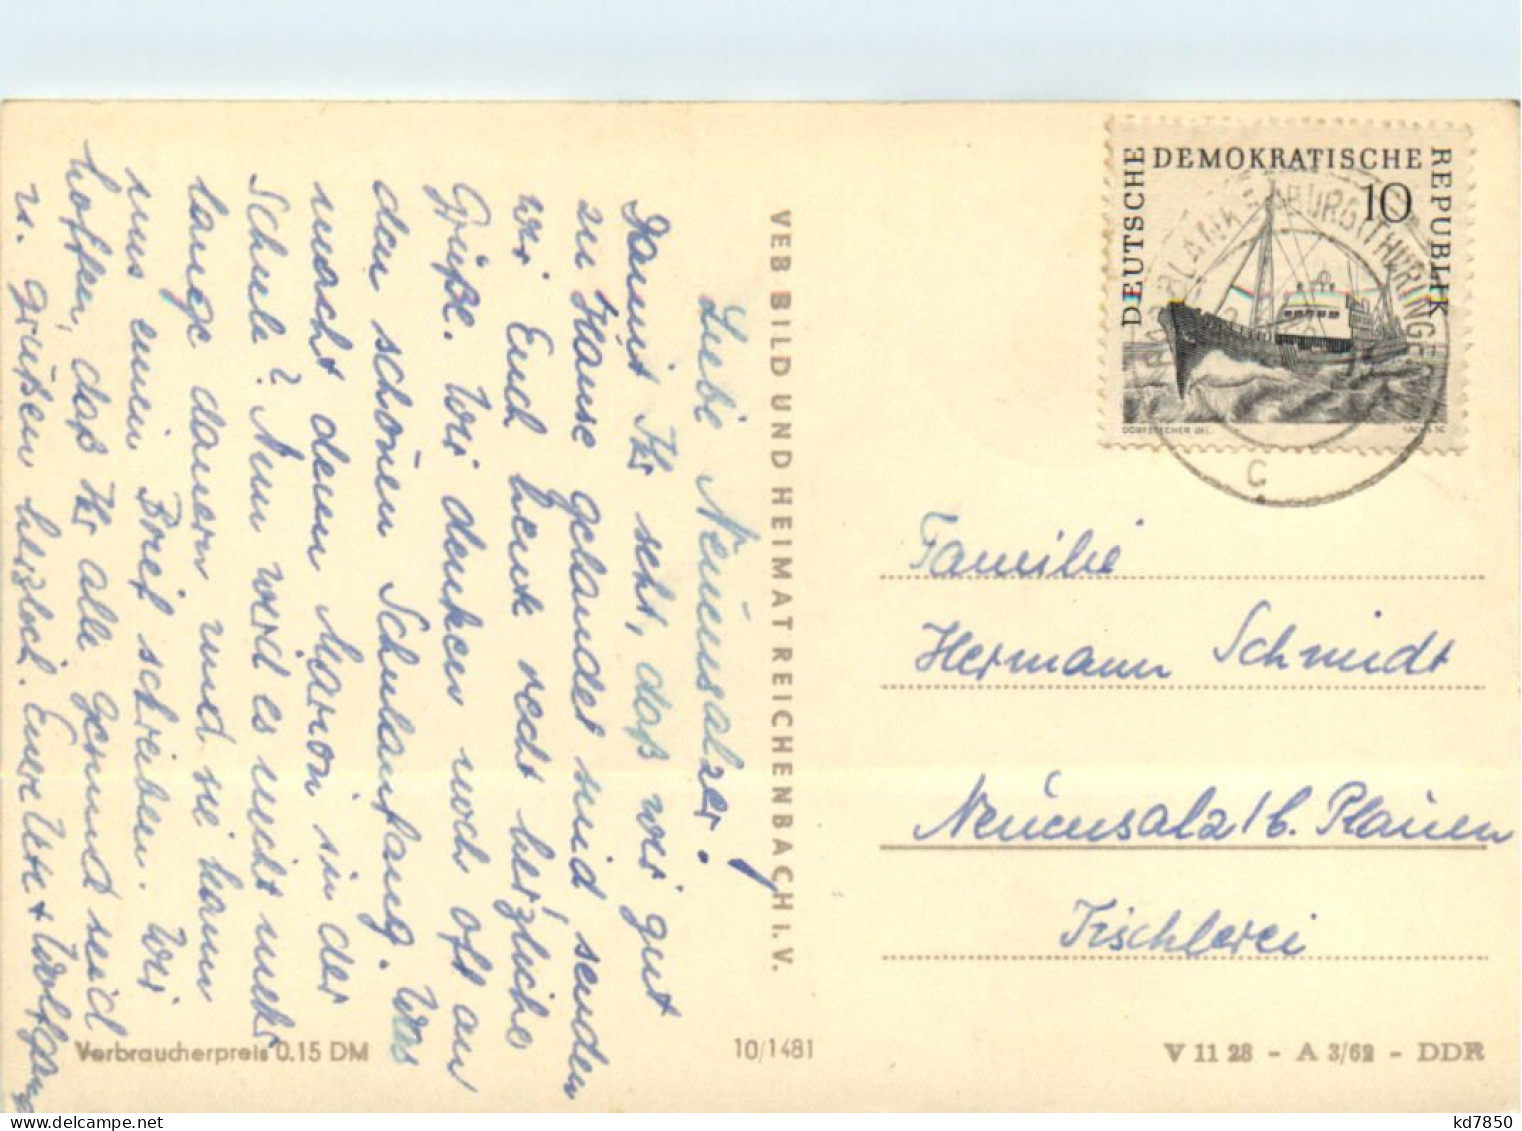 Liebe Neuensalzer!
Damit Ihr seht, daß wir gut
zu Hause gelandet sind senden
wir Euch heute recht herzliche
Grüße. Wir denken noch oft an
den schönen Schulanfang. Was
macht denn Marion in der
Schule? Nun wird es nicht mehr
lange dauern und sie kann
uns einen Brief schreiben. Wir
hoffen, daß Ihr alle gesund seid
u. grüßen herzlich. Eure Ute + Wolfgang
VEB BILD UND HEIMAT REICHENBACH i. V.
DEUTSCHE DEMOKRATISCHE REPUBLIK
10
DORFSTECHER DEL.
C
Familie
Hermann Schmidt
Neuensalz / b. Plauen
Tischlerei
Verbraucherpreis 0.15 DM
10/1481
V 11 28 - A 3/62 - DDR
kd7850